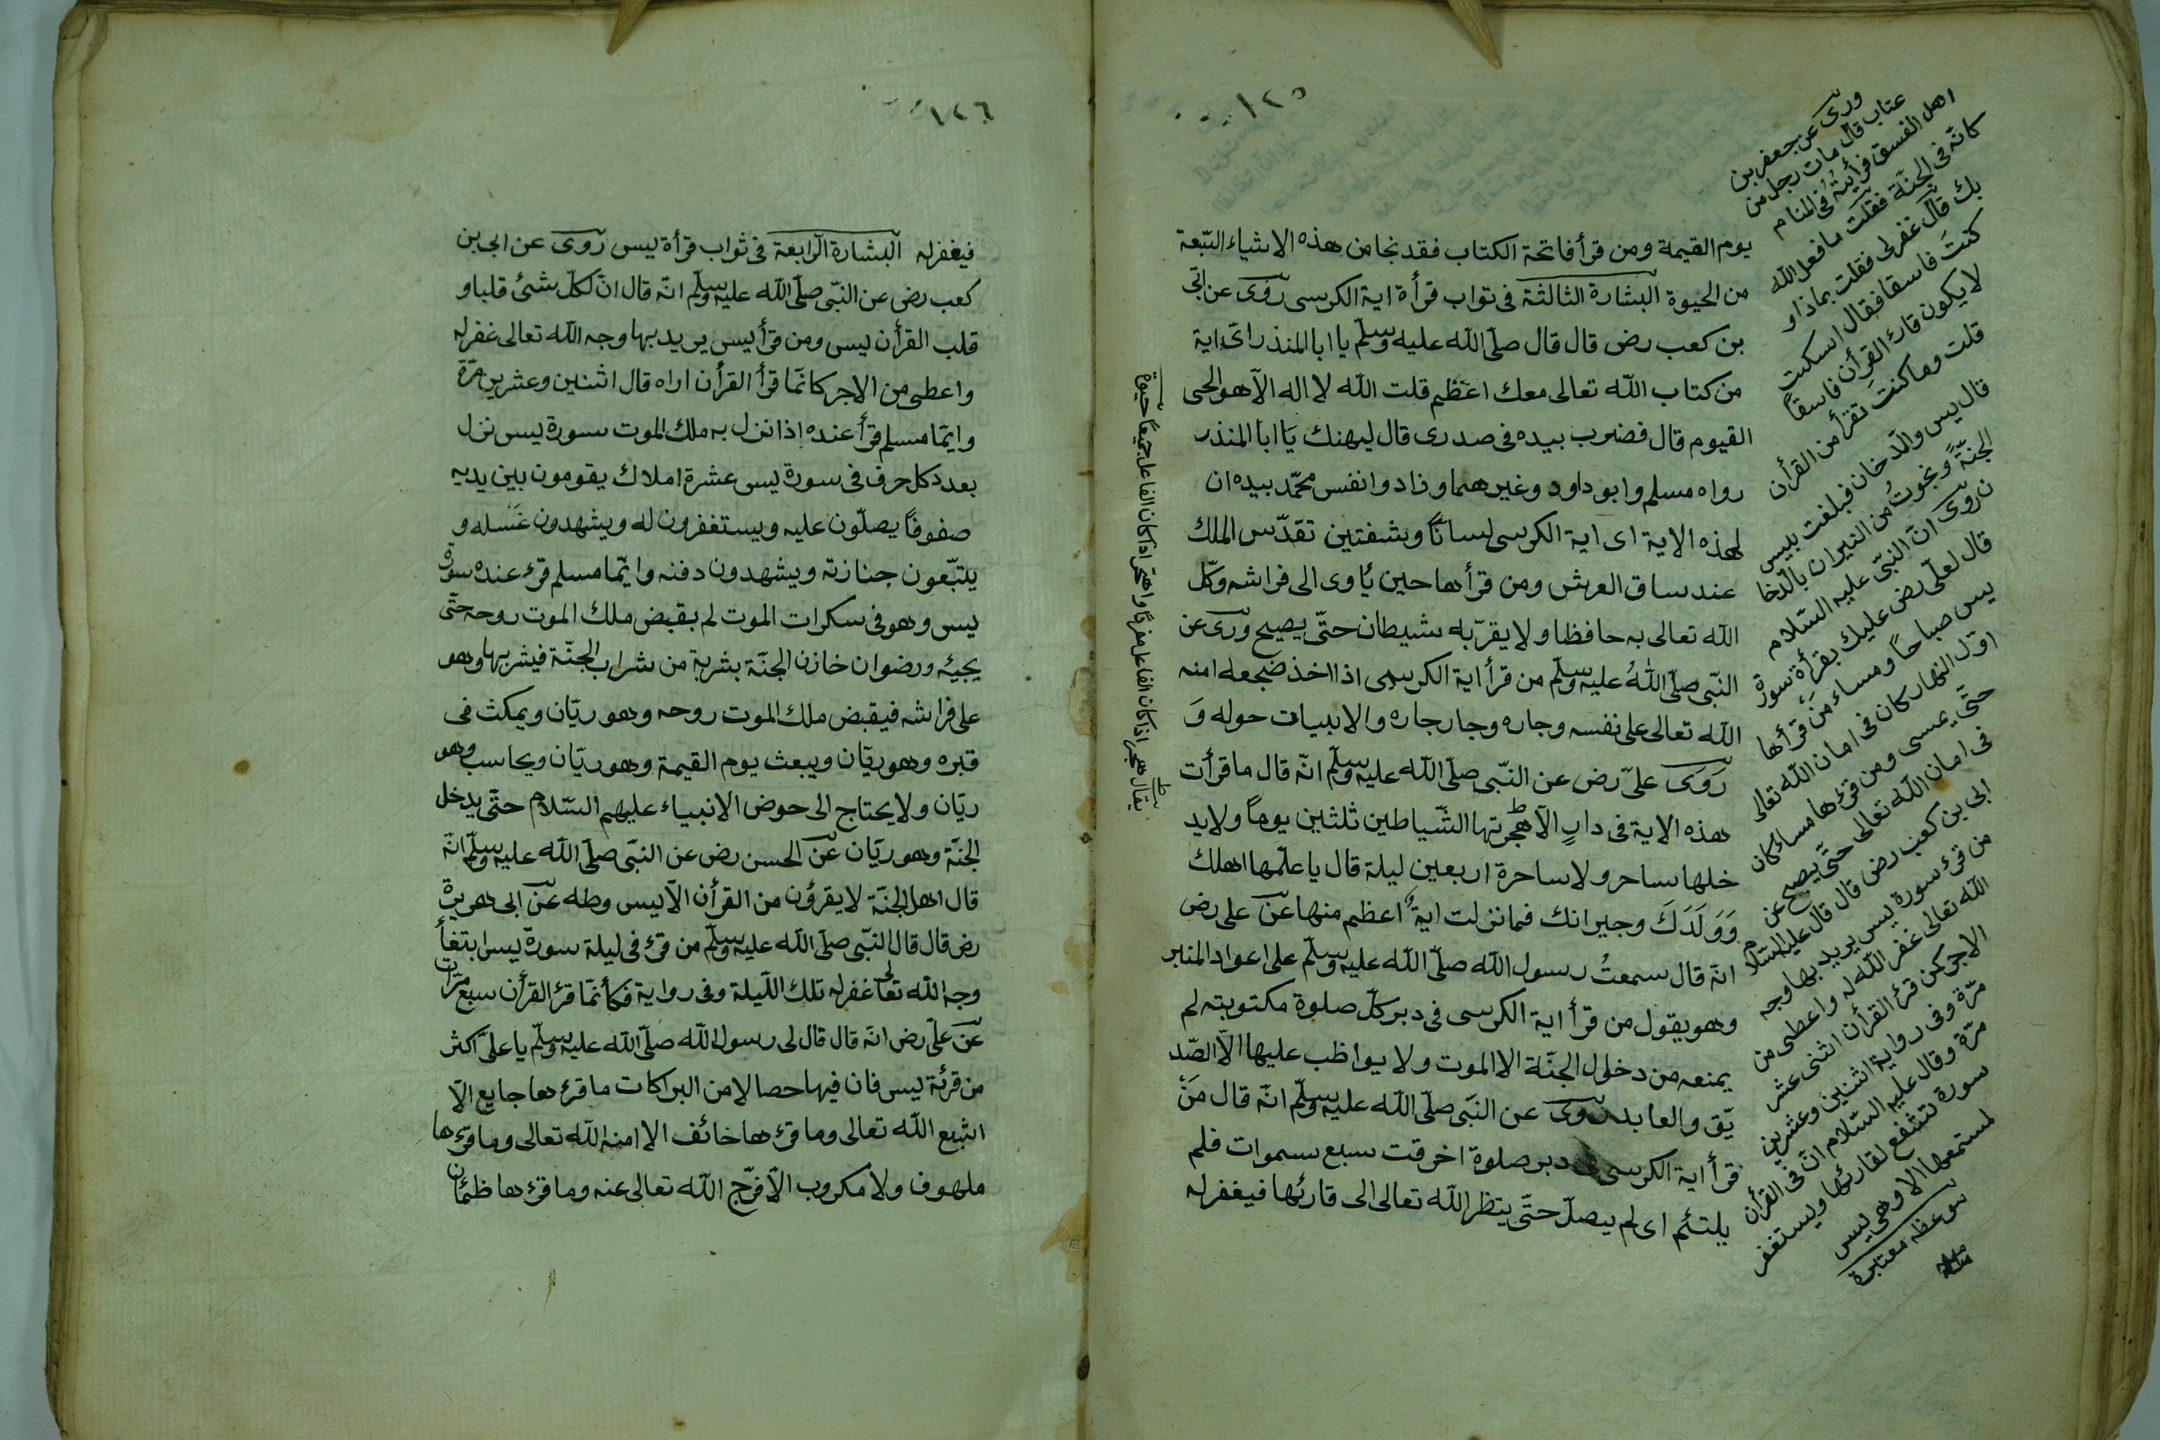 ١٢٥
يوم القيمة ومن قرأ فاتحة الكتاب فقد نجا من هذه الاشياء السّبعة
من الحيوة البشارة الثالثة فى ثواب قرأة اية الكرسى روى عن ابّى
بن كعب رض قال قال صلّى الله عليه وسلّم يا ابا المنذر اىّ اية
من كتاب الله تعالى معك اعظم قلت الله لا اله الّا هو الحى
القيوم قال فضرب بيده فى صدرى قال ليهنك يا ابا المنذر
رواه مسلم وابو داود وغيرهما وزادوا نفس محمّد بيده ان
لهذه الاية اى اية الكرسى لسانًا وشفتين تقدّس الملك
عند ساق العرش ومن قرأها حين يأوى الى فراشه وكّل
الله تعالى به حافظا ولا يقرّبه شيطان حتّى يصبح وروى عن
النّبى صلّى اللهُ عليه وسلّم من قرأ اية الكرسى اذا اخذ ضجعه امنه
الله تعالى على نفسه وجاره وجار جاره والابيات حوله وَ
رَوَى علىّ رض عن النّبى صلّى الله عليه وسلّم انّه قال ما قرأت
هذه الاية فى دارٍ الّا هجرتها الشّياطين ثلثين يوماً ولا يد
خلها ساحر ولا ساحرة اربعين ليلة قال يا علّمها اهلك
وَوَلَدَكَ وجيرانك فما نزلت ايةٌ اعظم منها عن على رض
انّه قال سمعتُ رسول الله صلّى الله عليه وسلّم على اعواد المنبر
وهو يقول من قرأ اية الكرسى فى دبر كلّ صلوة مكتوبته لم
يمنعه من دخلول الجنّة الا الموت ولا يواظب عليها الّا الصّد
يّق والعابد روى عن النّبى صلّى الله عليه وسلّم انّه قال مَنْ
قرأ اية الكرسى فى دبر صلوة اخرقت سبع سموات فلم
يلتئم اى لم يصلّ حتّى ينظر الله تعالى الى قارئها فيغفر له
وروى عن جعفر بن
عتاب قال مات رجل من
اهل الفسق فرأيتُهُ فى المنام
كانّه فى الجنّة فقلت ما فعل الله
بك قال غفر لى فقلت بماذا و
كنتَ فاسقا فقال اسكت
لا يكون قارئ القرأن فاسقاً
قلت وما كنتَ تقرأ من القرأن
قال يس والدّخان فبلغت بيس
الجنّةً ونجوتُ من النيران بالدّخا
ن روى انّ النبّى عليه السّلام
قال لعلّى رض عليك بقرأة سورة
يس صباحاً ومساء من قرأها
اوّل النهار كان فى امان الله تعالى
حتّى يمسى ومن قرءها مساء كان
فى امان الله تعالى حتّى يصبح عن
ابى بن كعب رض قال قال عليه السّلام
من قرء سورة يس يريد بها وجه
الله تعالى غفر الله له واعطى من
الاجر كمن قرء القرأن اثنى عشر
مرّة وفى رواية اثنين وعشرين
مرّة وقال عليه السّلام انّ فى القرأن
سورة تشفع لقارئها ويستغفر
لمستمعها الا وهى يس
موعظه معتابرة
يقال هجر اذا كان الفاعل مفردًا واهتجرا اذا كان الفاعل جميعاً حيوة
١٢٦
فيغفر له البشارة الرابعة فى ثواب قرأة يس روى عن ابى بن
كعب رض عن النبّى صلّى الله عليه وسلّم انّه قال انّ لكلّ شئ قلبا و
قلب القرأن يس ومن قرأ يس يريد بها وجه الله تعالى غفر له
واعطى من الاجر كانّما قرأ القرأن اراه قال اثنين وعشرين مرّة
وايّما مسلم قرأ عنده اذا نزل به ملك الموت سورة يس نزل
بعدد كلّ حرف فى سورة يس عشرة املاك يقومون بين يديه
صفوفًا يصلّون عليه ويستغفرون له ويشهدون غَسْله و
يتبّعون جنازته ويشهدون دفنه وايّما مسلم قرء عنده سورة
يس وهو فى سكرات الموت لم يقبض ملك الموت روحه حتّى
يجيئه ورضوان خازن الجنّة بشربة من شراب الجنّة فيشربها وهو
على فراشه فيقبض ملك الموت روحه وهو ريّان ويمكث فى
قبره وهو ريّان ويبعث يوم القيمة وهو ريّان ويحاسب وهو
ريّان ولا يحتاج الى حوض الانبياء عليهم السّلام حتّى يدخل
الجنّة وهو ريّان عن الحسن رض عن النبّى صلّى الله عليه وسلّم انّه
قال اهل الجنّة لا يقرؤن من القرأن الّا يس وطه عن ابى هريرة
رض قال قال النبّى صلّى الله عليه وسلّم من قرء فى ليلة سورة يس ابتغأ
وجه الله تعالى غفر له تلك اللّيلة وفى رواية فكأنّما قرء القرأن سبع مرّات
عن علىّ رض انّه قال قال لى رسول الله صلّى الله عليه وسلّم يا علىّ اكثر
من قرئة يس فان فيها حصالا من البراكات ما قرءها جايع الّا
اشبع الله تعالى وما قرءها خائف الا امنه الله تعالى وما قرءها
ملهوف ولا مكروب الّا فرّج الله تعالى عنه وما قرءها ظمئان